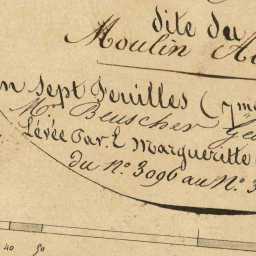 dite du
Moulin
en Sept Feuilles (7me
Mr Beuscher
Levée Par L Margueritte
du No. 3096 au No. 3
40 50